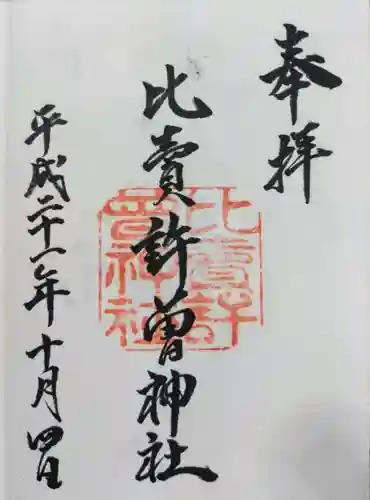 奉拝
比賣許曽神社
比賣許
曽神社
平成二十一年十月四日